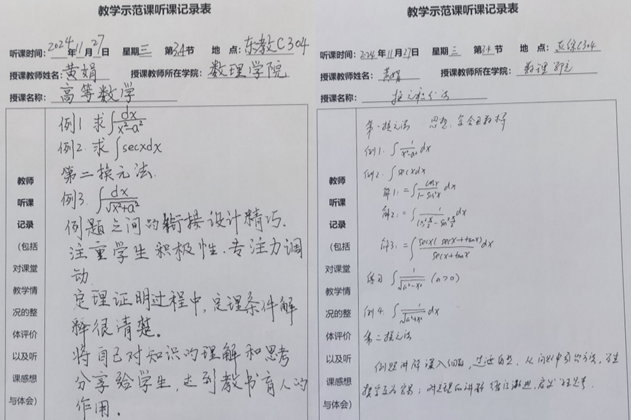 教学示范课听课记录表
听课时间: 2024年11月27日 星期三 第34节 地点: 东教C304
授课教师姓名: 黄娟 授课教师所在学院: 数理学院
授课名称: 高等数学
教师
听课
记录
(包括
对课堂
教学情
况的整
体评价
以及听
课感想
与体会)
例1 求∫dx/(x²-a²)
例2. 求∫secxdx
第二换元法.
例3. ∫dx/√(x²+a²)
例题之间的衔接设计精巧.
注重学生积极性.专注力调
动.
定理证明过程中,定理条件解
释很清楚.
将自己对知识的理解和思考
分享给学生,走到教书育人的
作用.
教学示范课听课记录表
听课时间: 2024年11月27日 星期三 第34节 地点: 东教C304
授课教师姓名: 黄娟 授课教师所在学院: 数理学院
授课名称: 换元积分法
教师
听课
记录
(包括
对课堂
教学情
况的整
体评价
以及听
课感想
与体会)
第一换元法 思想:
例1. ∫1/(x²-a²)dx
例2. ∫secxdx
解1. =∫cosx/(1-sin²x)dx
解2. =∫1/(cos²x/2-sin²x/2)dx
解3. =∫secx(secx+tanx)/(secx+tanx)dx
练习 ∫1/√(a²-x²) (a>0)
例4. ∫1/√(a²+x²)dx
第二换元法
例题讲解深入细致,过渡自然,